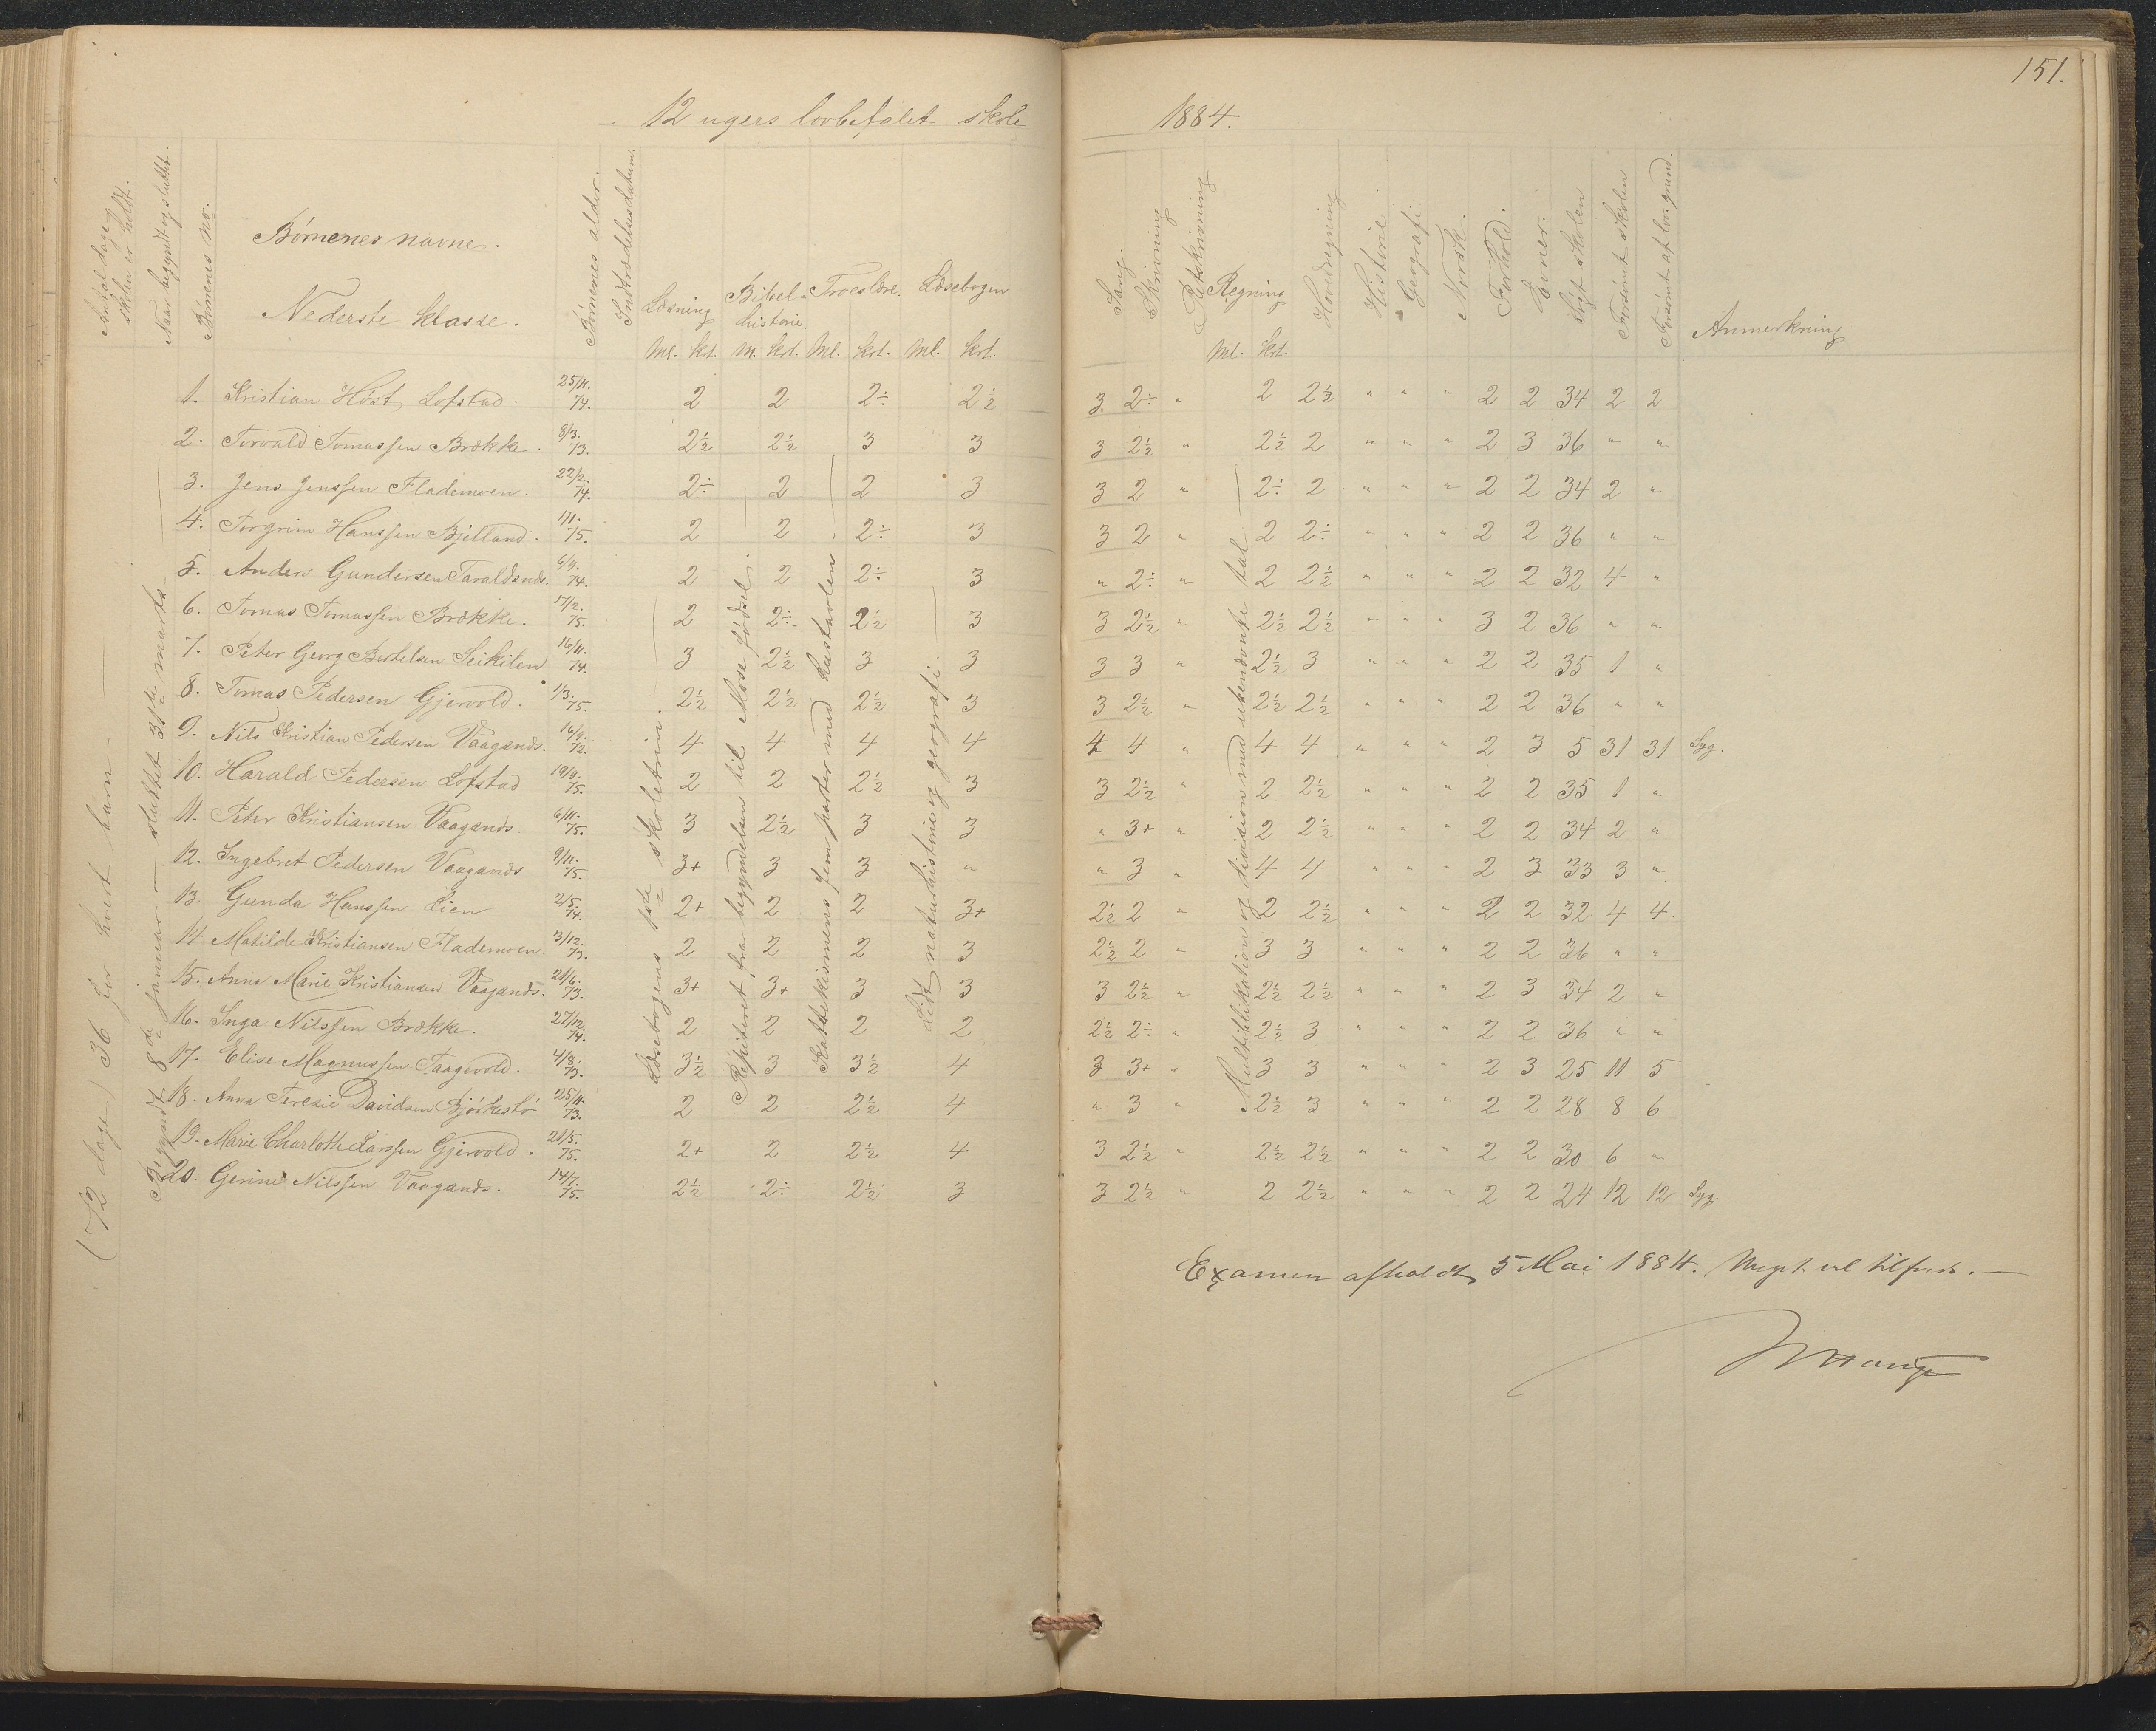 151.
12 ugers lovbefalet skole 1884.
Antal dage skolen er holdt.
Naar begyndt og sluttet.
Børnenes no.
Børnenes navne.
Nederste klasse.
Børnenes alder.
Indtrædelsesdatum.
Læsning Bibelhistorie. Troeslære. Læsebogen
Ml. krt. M. krt. Ml. krt. Ml. krt.
Sang. Skrivning Retskrivning Regning Hovedregning Historie Geografi Norsk. Forhold. Evner. Søgt skolen Forsømt skolen Forsømt af lov. grund. Anmerkning
Ml. krt.
1. Kristian Höst Lofstad. 25/11. 74. 2 2 2÷ 2½ 3 2÷ " 2 2½ " " " 2 2 34 2 2
2. Torvald Tomassen Brække. 8/3. 73. 2½ 2½ 3 3 3 2½ " 2½ 2 " " " 2 3 36 " "
3. Jens Jenssen Flademoen. 22/2. 74. 2÷ 2 2 3 3 2 " 2÷ 2 " " " 2 2 34 2 "
4. Torgrim Hanssen Bjelland. 1/11. 75. 2 2 2÷ 3 3 2 " 2 2÷ " " " 2 2 36 " "
5. Anders Gundersen Taraldsnds. 6/9. 74. 2 2 2÷ 3 " 2÷ " 2 2½ " " " 2 2 32 4 "
6. Tomas Tomassen Brække. 17/2. 75. 2 2÷ 2½ 3 3 2½ " 2½ 2½ " " " 3 2 36 " "
7. Peter Georg Bertelsen Seikilen 16/11. 74. 3 2½ 3 3 3 3 " 2½ 3 " " " 2 2 35 1 "
8. Tomas Pedersen Gjervold. 1/3. 75. 2½ 2½ 2½ 3 3 2½ " 2½ 2½ " " " 2 2 36 " "
9. Nils Kristian Pedersen Vaagsnds. 16/9. 72. 4 4 4 4 4 4 " 4 4 " " " 2 3 5 31 31 Syg.
10. Harald Pedersen Lofstad 19/9. 75. 2 2 2½ 3 3 2½ " 2 2½ " " " 2 2 35 1 "
11. Peter Kristiansen Vaagsnds. 6/11. 75. 3 2½ 3 3 " 3+ " 2 2½ " " " 2 2 34 2 "
12. Ingebret Pedersen Vaagsnds 9/11. 75. 3+ 3 3 " " 3 " 4 4 " " " 2 3 33 3 "
13. Gunda Hanssen Lien 2/5. 74. 2+ 2 2 3+ 2½ 2 " 2 2½ " " " 2 2 32 4 4.
14. Matilde Kristiansen Flademoen 3/12. 73. 2 2 2 3 2½ 2 " 3 3 " " " 2 2 36 " "
15. Anne Marie Kristiansen Vaagsnds. 21/6. 73. 3+ 3+ 3 3 3 2½ " 2½ 2½ " " " 2 3 34 2 "
16. Inga Nilssen Brække. 27/12. 74. 2 2 2 2 2½ 2÷ " 2½ 3 " " " 2 2 36 " "
17. Elise Magnussen Taagvold. 4/8. 73. 3½ 3 3½ 4 3 3+ " 3 3 " " " 2 3 25 11 5
18. Anna Teresie Davidsen Bjørkestø 25/11. 73. 2 2 2½ 4 " 3 " 2½ 3 " " " 2 2 28 8 6
19. Marie Charlotte Larssen Gjervold. 21/5. 75. 2+ 2 2½ 4 3 2½ " 2½ 2½ " " " 2 2 30 6 "
20. Gerine Nilssen Vaagsnds. 14/7. 75. 2½ 2÷ 2½ 3 3 2½ " 2 2½ " " " 2 2 24 12 12 Syg.
(72 dage) 36 for hvert barn
Begyndt 8de januar – sluttet 31te marts
Læsebogens 1ste skoletrin.
Repiteret fra begyndelsen til Mose fødsel.
Kattekismens fem parter med hustavlen.
Lidt naturhistorie og geografi.
Multiplikation og division med ubenævnte tal
Examen afholdt 5 Mai 1884. Meget vel tilfreds.